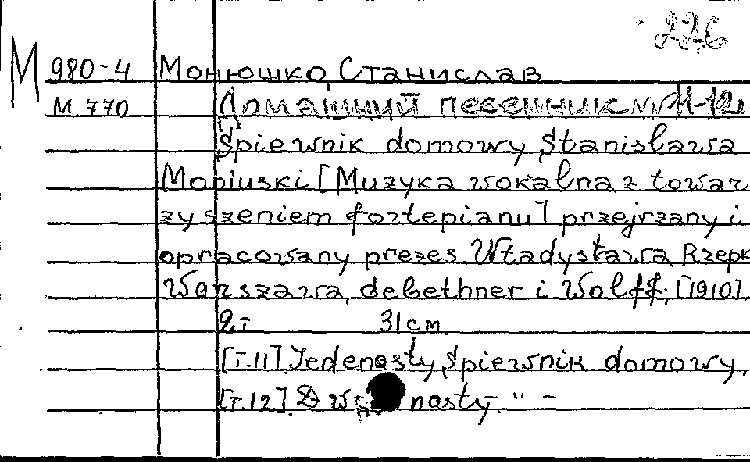 226
М 980-4 Монюшко, Станислав
М 770 Домашний песенник 11-12
Śpiewnik domowy Stanisława
Moniuszki [Muzyka wokalna z towar
zyszeniem fortepianu] przejrzany i
opracowany przez Władysława Rzepk
Warszawa, Gebethner i Wolff, [1910].
2т. 31 см
[т.11] Jedenasty Śpiewnik domowy,
[т.12]. nasty -"-